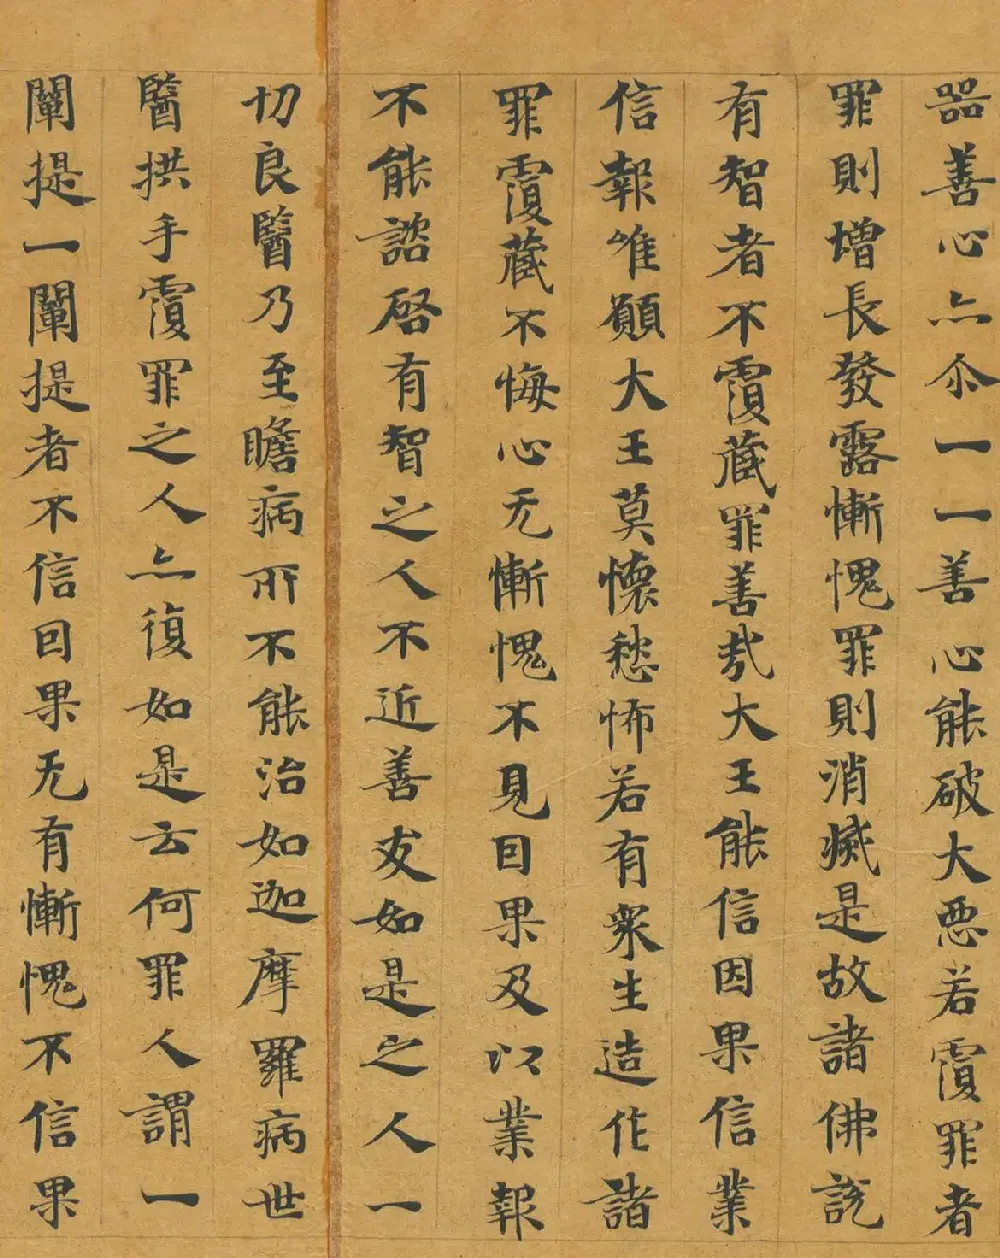 器善心亦尒一一善心能破大悪若覆罪者
罪則增長發露慚愧罪則消滅是故諸佛說
有智者不覆藏罪善哉大王能信因果信業
信報唯願大王莫懷愁怖若有衆生造作諸
罪覆藏不悔心无慚愧不見因果及以業報
不能諮啓有智之人不近善友如是之人一
切良醫乃至瞻病所不能治如迦摩羅病世
醫拱手覆罪之人亦復如是云何罪人謂一
闡提一闡提者不信因果无有慚愧不信果